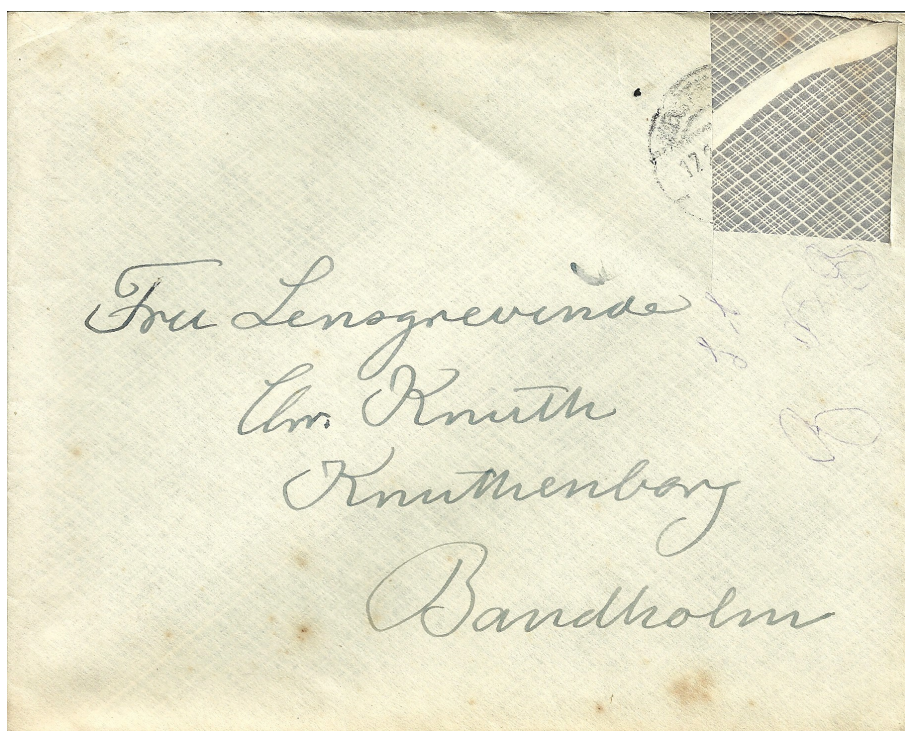 Fru Lensgrevinde
Chr. Knuth
Knuthenborg
Bandholm